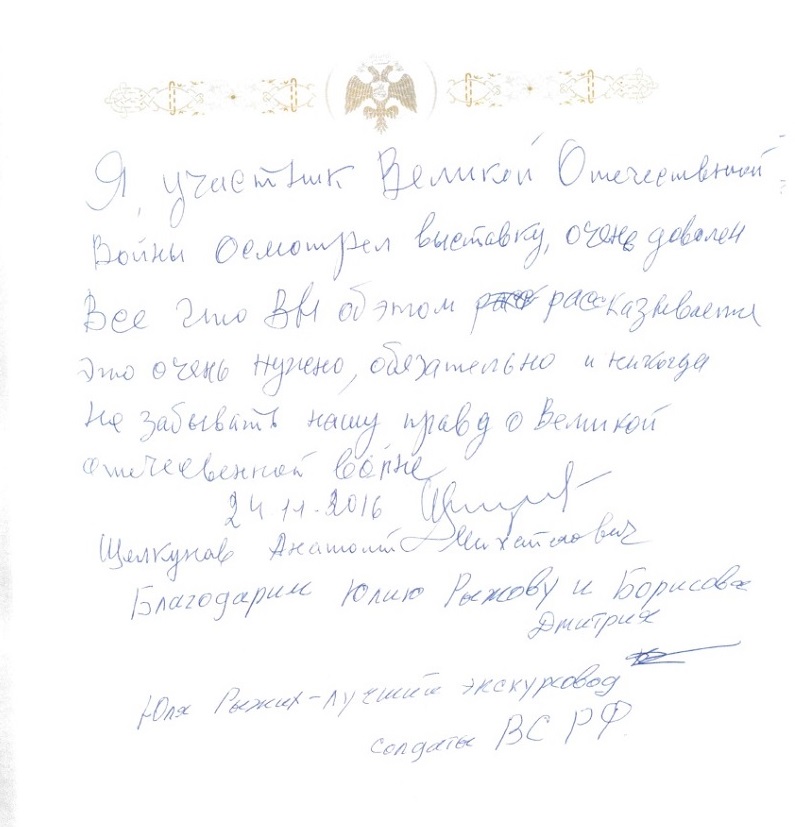 Я, участник Великой Отечественной
Войны осмотрел выставку, очень доволен
Все что Вы об этом рассказываете
это очень нужно, обязательно и никогда
Не забывать нашу правд о Великой
отечесвенной войне
24.11.2016
Щелкунов Анатолий Михайлович
Благодарим Юлию Рыжову и Борисова
Дмитрия
Юля Рыжих - лучший экскурсовод
солдаты ВС РФ.